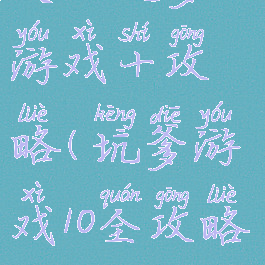 yóu xì shí gōng
游戏十攻
lüè kēng diē yóu
略(坑爹游
xì quán gōng lüè
戏10全攻略